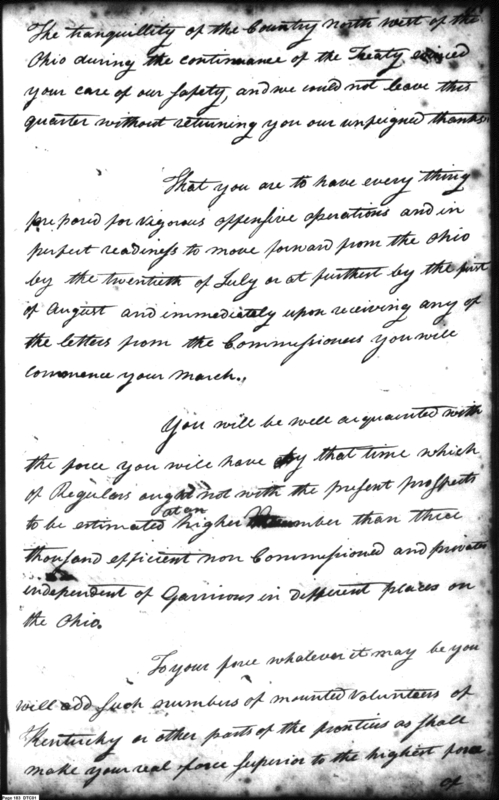 The tranquillity of the Country North west of the
Ohio during the continuance of the Treaty evinced
your care of our safety, and we could not leave this
quarter without returning you our unfeigned thanks.
That you are to have every thing
prepared for vigorous offensive operations and in
perfect readiness to move forward from the Ohio
by the twentieth of July or at furthest by the first
of August and immediately upon receiving any of
the letters from the Commissioners you will
commence your march..
You will be well acquainted with
the force you will have by that time which
of Regulars ought not with the present prospects
at an
to be estimated higher number than three
thousand efficient non Commissioned and privates
independent of Garrisons in different places on
the Ohio.
To your force whatever it may be you
will add such numbers of mounted Volunteers of
Kentucky or other parts of the frontiers as shall
make your real force superior to the highest force
of
Page 183 DTC01